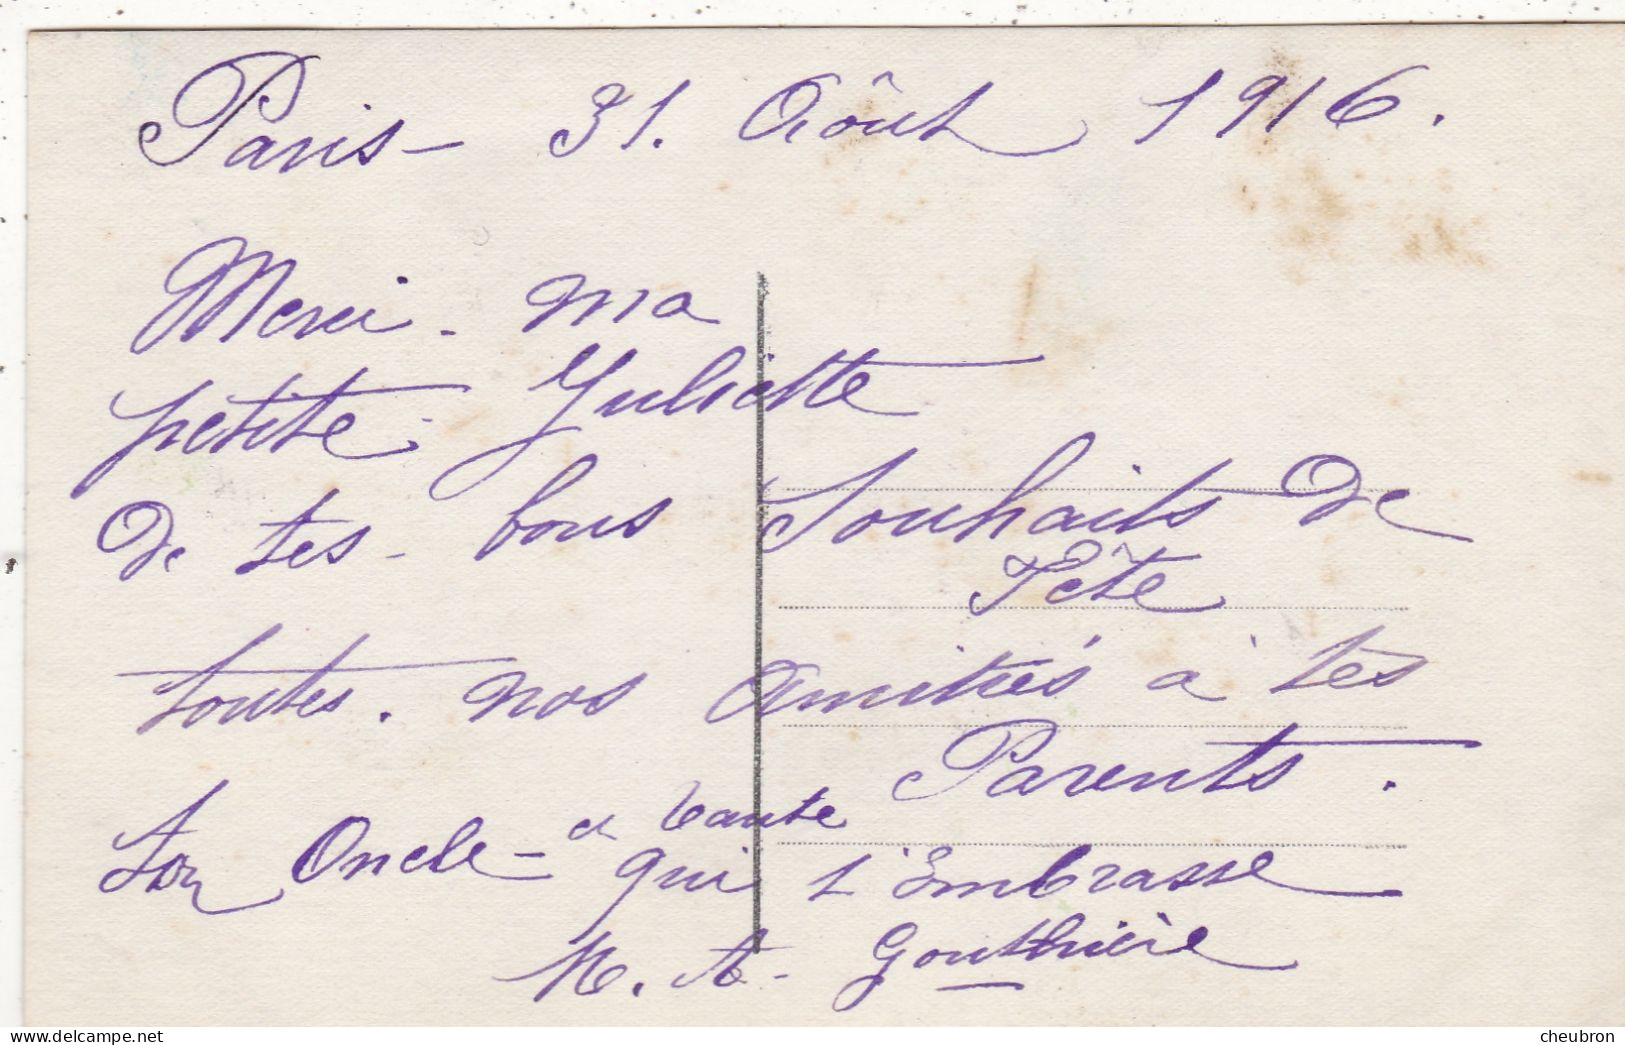 Paris - 31. Aôut 1916.
Merci - ma
petite Juliette
de tes - bons Souhaits de
Fête
toutes. nos Amitiés à tes
Parents.
Ton Oncle - et tante
qui t'Embrasse
M. A - Gouthière
cheubron
© delcampe.net